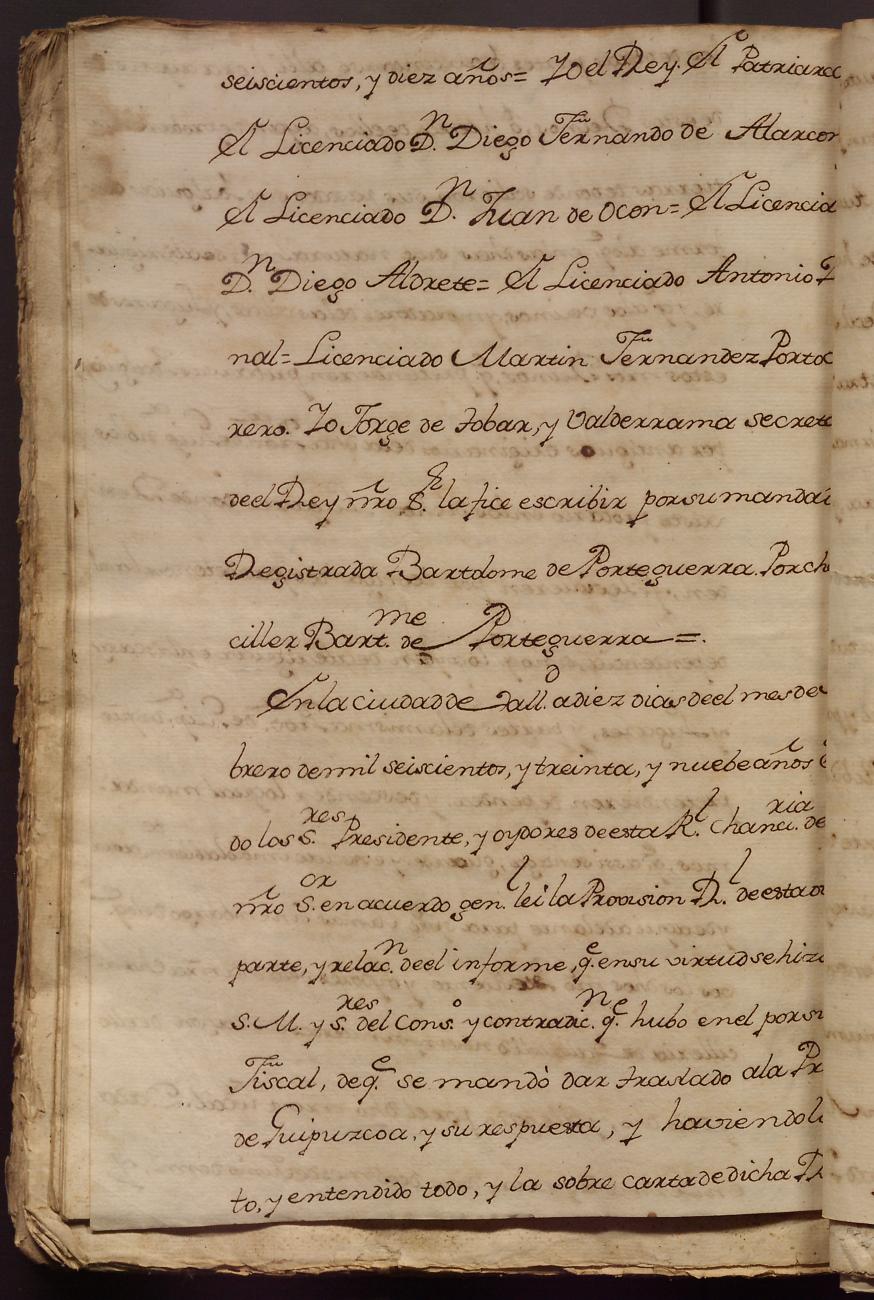 seiscientos, y diez años= Yo el Rey. El Patriarc
El Licenciado D.n Diego Fernando de Alarcon
El Licenciado D.n Juan de Ocon= El Licencia
D.n Diego Aldrete= El Licenciado Antonio
nal= Licenciado Martin Fernandez Portoc
rero. Yo Jorge de tobar, y Valderrama secret
de el Rey nro S.r la fice escribir por su manda
Registrada Bartolome de Porteguerra. Por ch
ciller Bart.me de Porteguerra=.
En la ciudad de Vall.d a diez dias de el mes de
brero de mil seiscientos, y treinta, y nuebe años
do los S.res Presidente, y oydores de esta R.l Chanci.ria de
nro S.or en acuerdo gen.l lei la Provision R.l de esta o
parte, y relac.n de el informe, q.e en su virtud se hizo
S. M. y S.res del Cons.o y contradic.n q.e hubo en el por su
Fiscal, de q.e se mandò dar traslado a la Pr
de Guipuzcoa, y su respuesta, y haviendol
to, y entendido todo, y la sobre carta de dicha